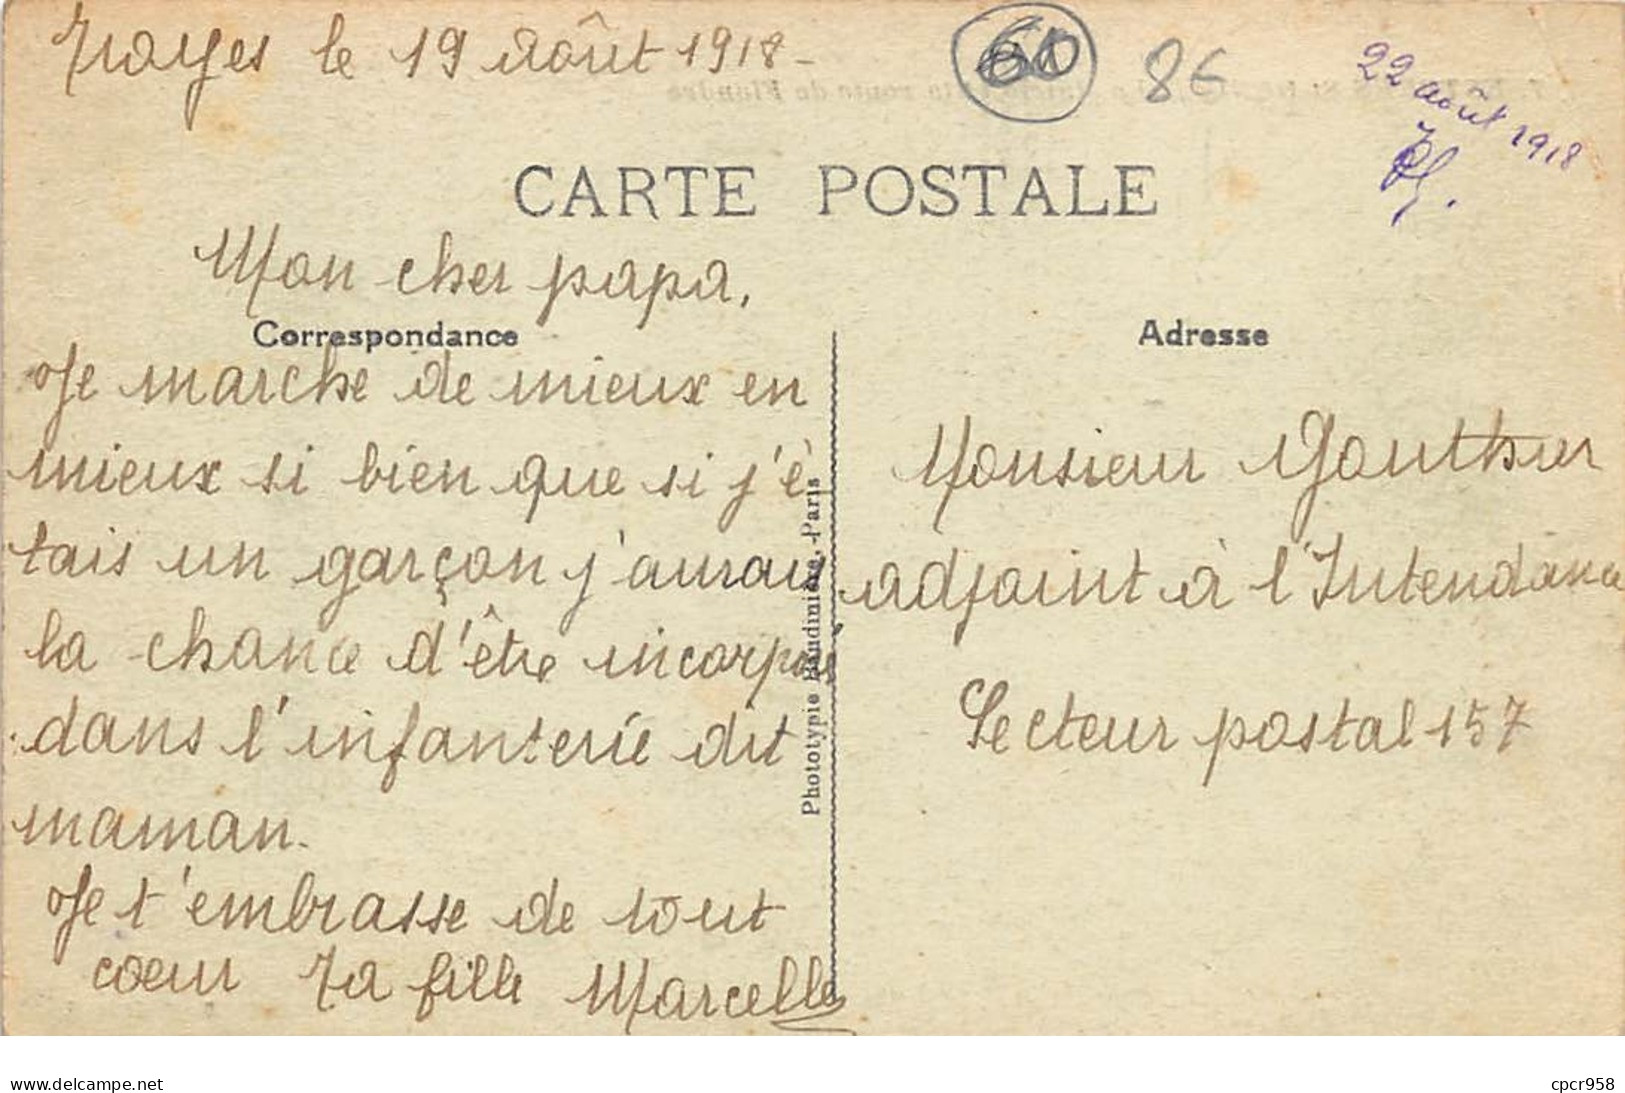 Noyes le 19 août 1918-
60
8€
22 août 1918
CARTE POSTALE
Mon cher papa,
Correspondance
Adresse
Je marche de mieux en
mieux si bien que si j'é
tais un garçon j'aurais
la chance d'être incorporé
dans l'infanterie dit
maman.
Je t'embrasse de tout
coeur Ta fille Marcelle
Phototypie Baudinière, Paris
Monsieur Gouthier
adjoint à l'Intendance
Secteur postal 157
www.delcampe.net
cpcr958